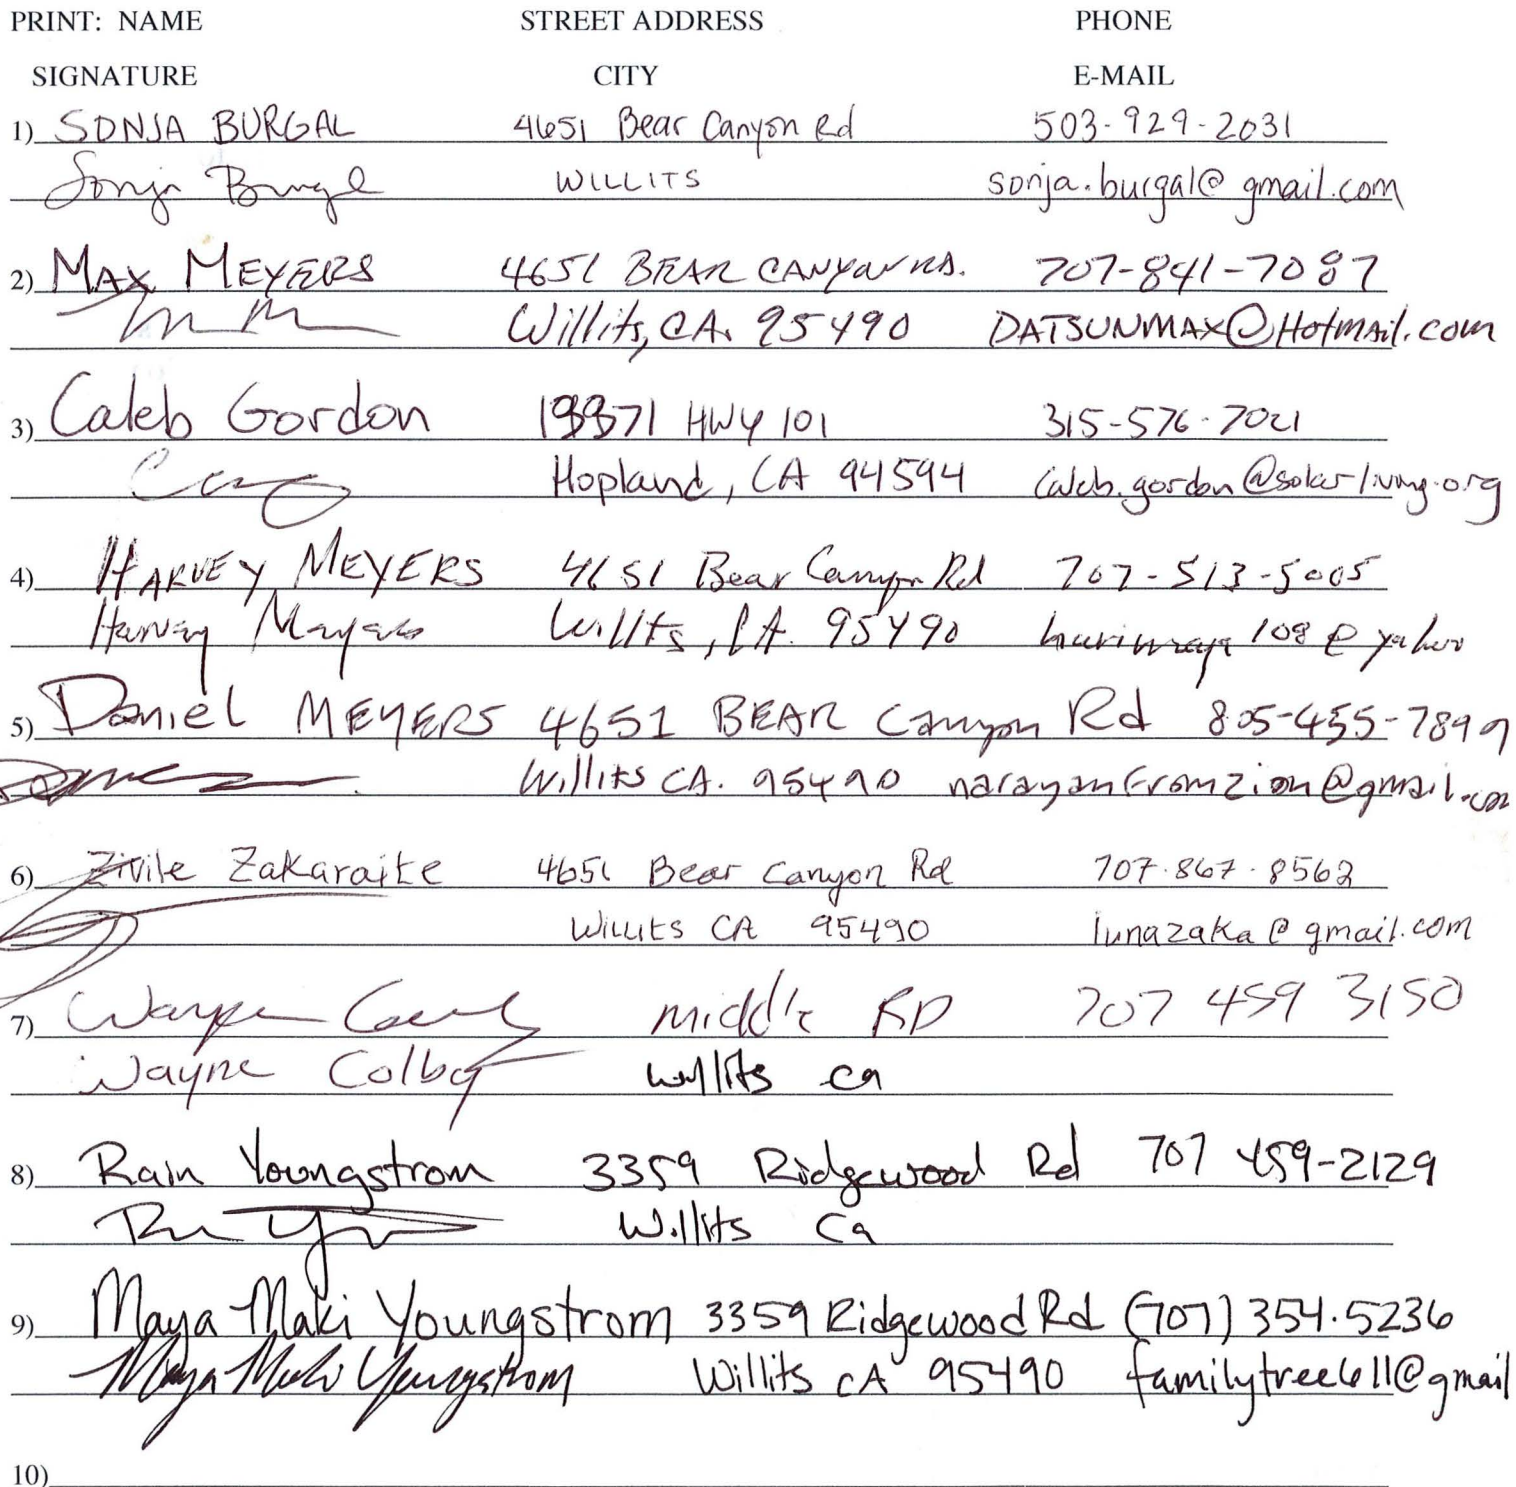 PRINT: NAME STREET ADDRESS PHONE
SIGNATURE CITY E-MAIL
1) SONJA BURGAL 4651 Bear Canyon Rd 503-929-2031
Sonja Burgal WILLITS sonja.burgal@gmail.com
2) MAX MEYERS 4651 BEAR CANYON RD. 707-841-7087
Willits, CA. 95490 DATSUNMAX@Hotmail.com
3) Caleb Gordon HWY 101 315-576-7021
Hopland, CA 94594 caleb.gordon@solarliving.org
4) HARVEY MEYERS 4651 Bear Canyon Rd 707-513-5005
Harvey Meyers Willits, CA. 95490
5) Daniel MEYERS 4651 BEAR Canyon Rd 805-455-7899
Willits CA. 95490 narayanfromzion@gmail.com
6) Zivile Zakaraite 4651 Bear Canyon Rd 707.867.8562
Willits CA 95490 lunazaka@gmail.com
7) Wayne middle RD 707 459 3150
Wayne Colby willits ca
8) Rain Youngstrom 3359 Ridgewood Rd 707 459-2129
Willits Ca
9) Maya Maki Youngstrom 3359 Ridgewood Rd (707) 354.5236
Maya Maki Youngstrom Willits CA 95490 familytree611@gmail
10)